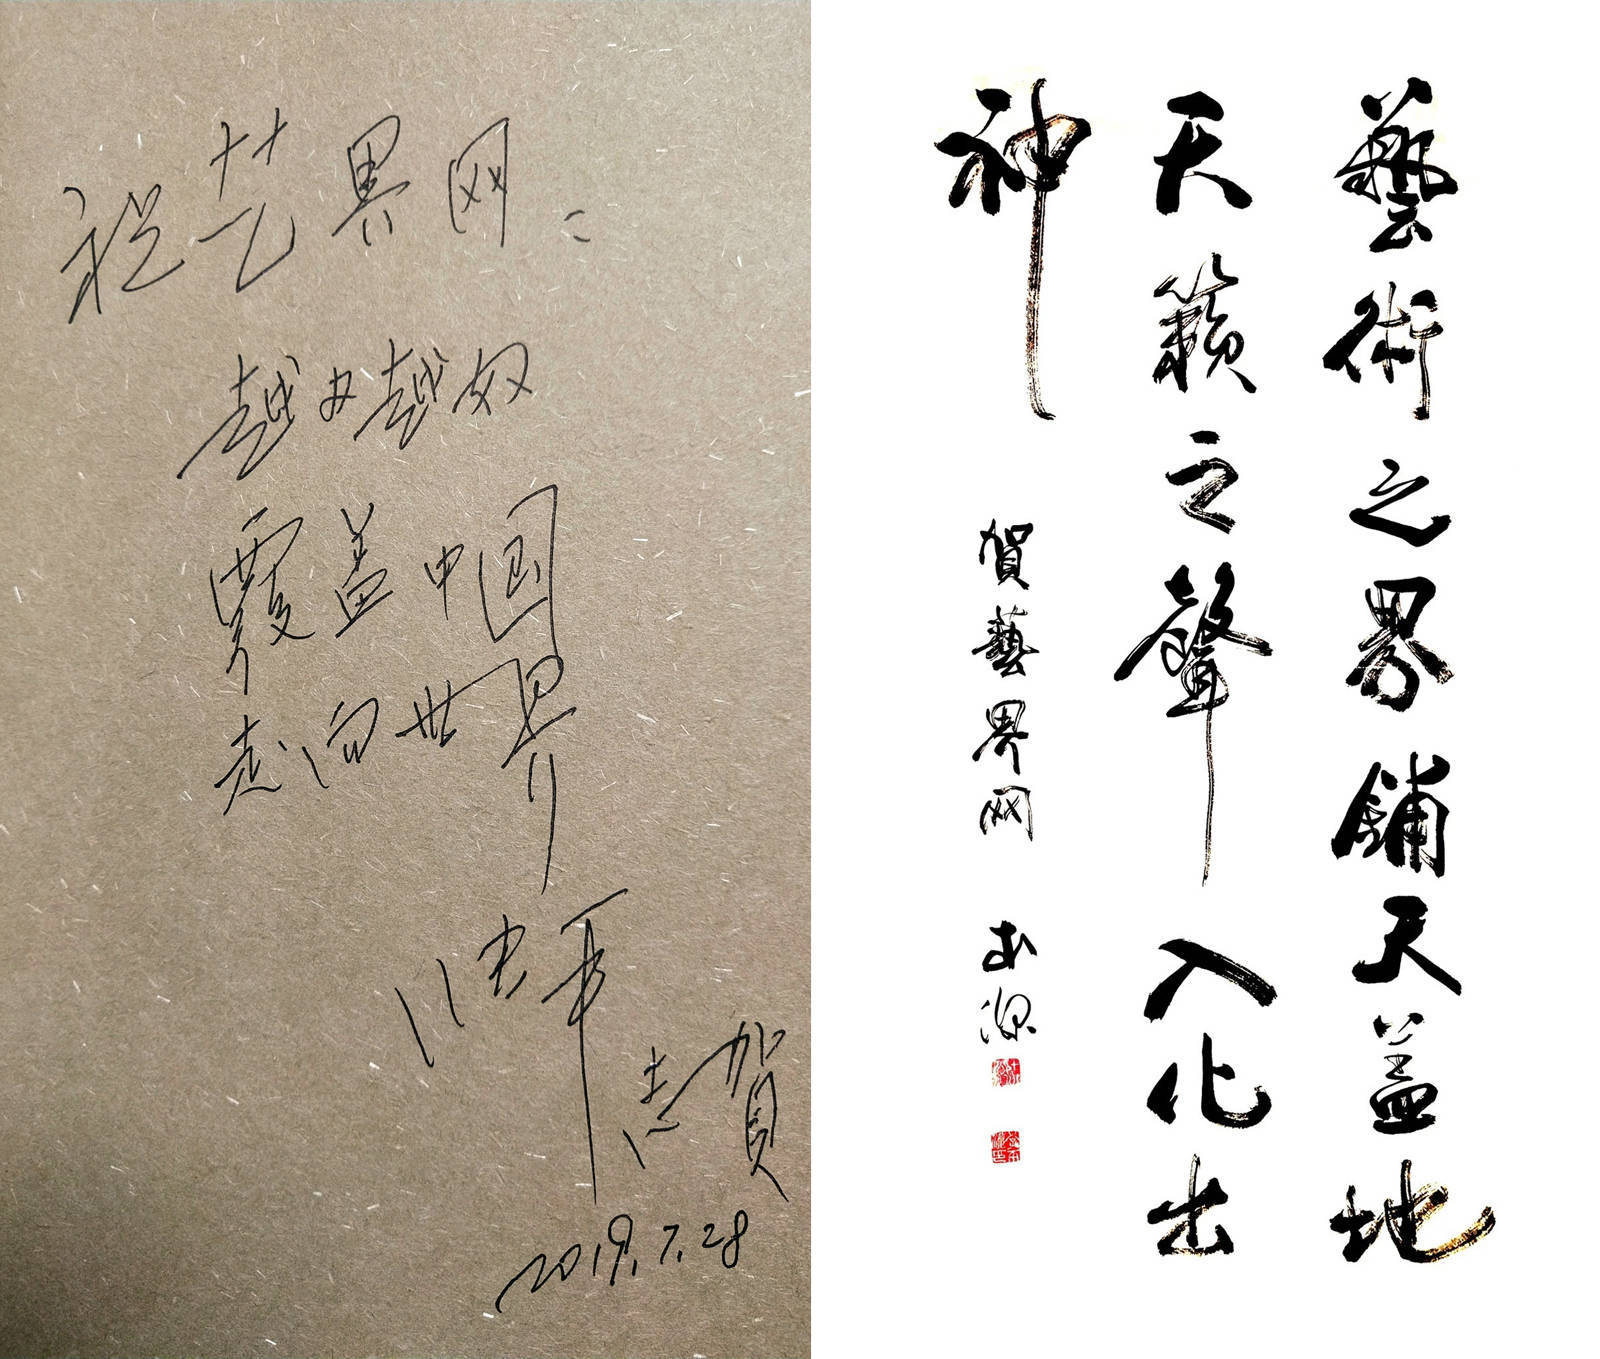 祝艺界网：
越办越好
覆盖中国
走向世界
志贺
2019.7.28
藝術之界鋪天蓋地
天籟之聲入化出
神
賀藝界网